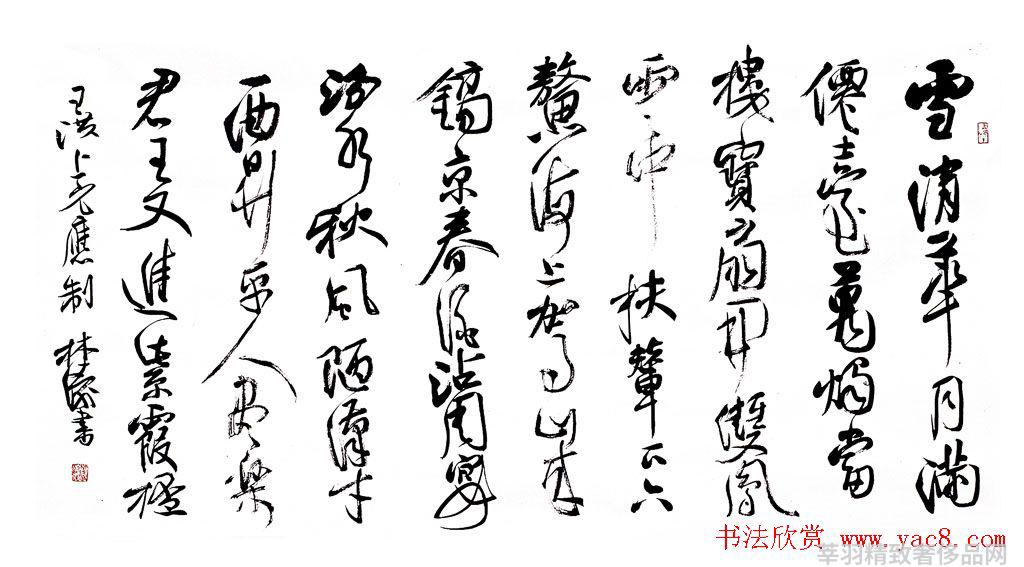 雪消華月滿
僊臺萬燭當
樓寶扇開雙鳳
雲中扶輦下六
鰲海上駕山來
鎬京春酒沾周宴
汾水秋風陋漢才
一曲昇平人盡樂
君王又進紫霞桮
王 上元應制 林 書
书法欣赏 www.yac8.com
莘羽精致奢侈品网